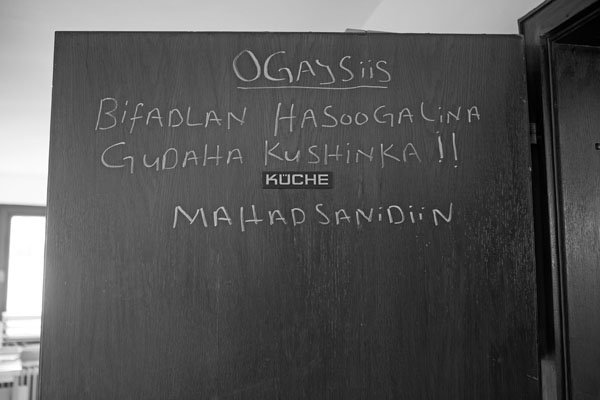 OGAYSiiS
BiFADLAN HASOOGALiNA
GUDAHA KUSHiNKA !!
KÜCHE
MAHADSANiDiiN